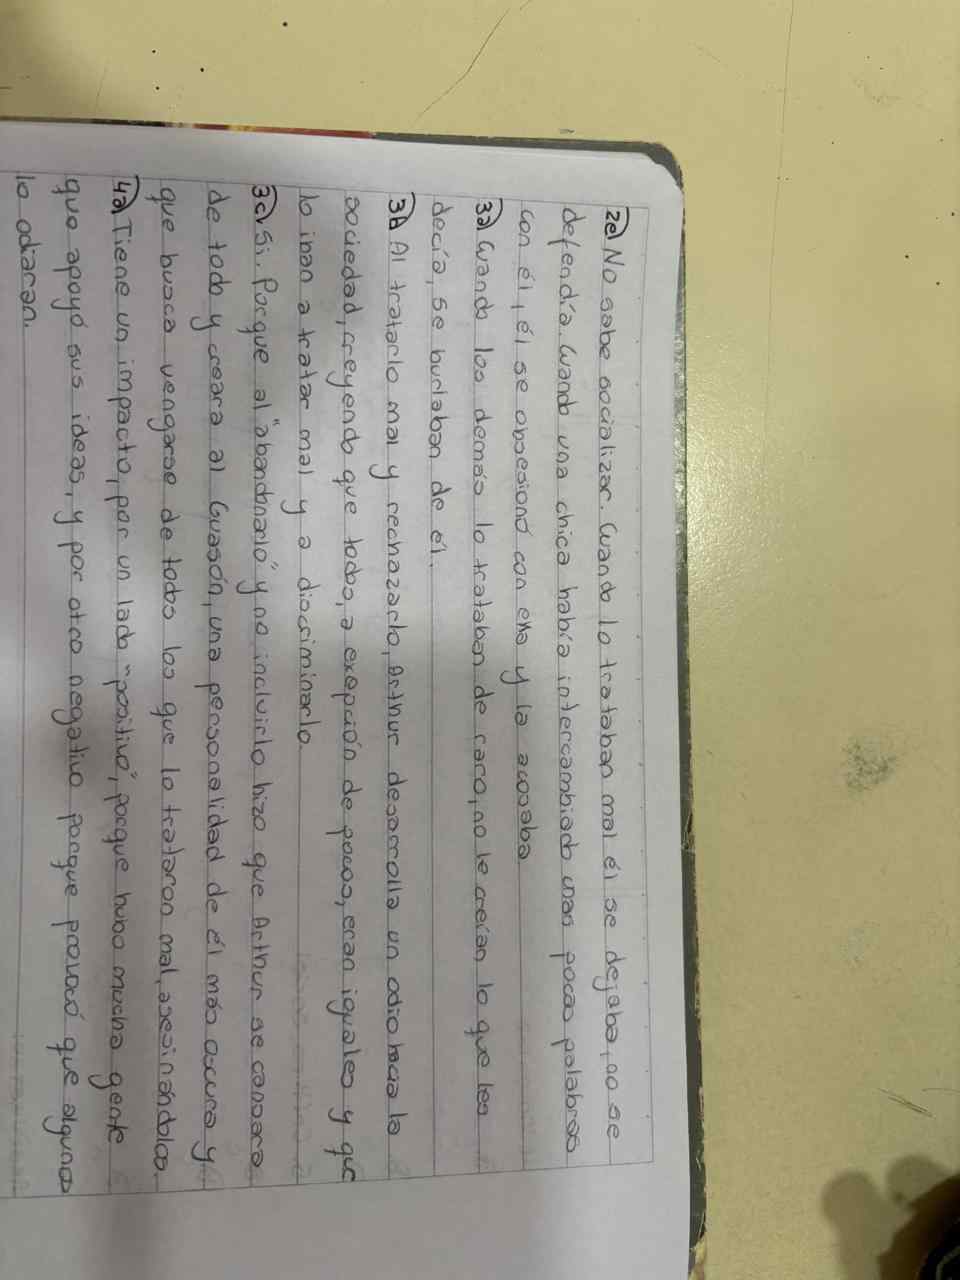 2e) No sabe socializar. Cuando lo trataban mal él se dejaba, no se
defendía. Cuando una chica había intercambiado unas pocas palabras
con él, él se obsesionó con ella y la acosaba
3a) Cuando los demás lo trataban de raro, no le creían lo que les
decía, se burlaban de él.
3b) Al tratarlo mal y rechazarlo, Arthur desarrolla un odio hacia la
sociedad, creyendo que todos, a exepción de pocos, eran iguales y que
lo iban a tratar mal y a discriminarlo.
3c) Si. Porque al "abandonarlo" y no incluirlo hizo que Arthur se cansara
de todo y creara al Guasón, una personalidad de él más oscura y
que busca vengarse de todos los que lo trataron mal, asesinándolos.
4a) Tiene un impacto, por un lado "positivo", porque hubo mucha gente
que apoyó sus ideas, y por otro negativo porque provocó que algunos
lo odiaran.